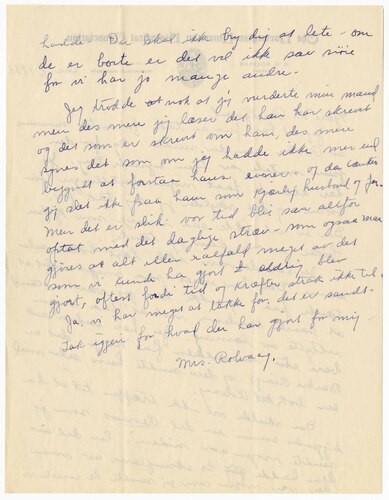 hadde. Du skal ikke bry dig at lete - om
de er borte er det vel ikke saa nøie
for vi har jo mange andre.
Jeg trodde at nok at jeg vurderte min mand
men des mere jeg læser det han har skrevet
og det som er skrevet om ham, des mere
synes det som om jeg hadde ikke mer end
begyndt at forstaa hans evner - og da tænker
jeg slet ikke paa ham som kjærlig husbond og far.
Men det er slik vor tid blir saa altfor
optat med det daglige stræv - som ogsaa maa
gjøres at alt eller ialfald meget av det
som vi kunde ha gjort aldrig blev
gjort, oftest fordi tid og kræfter strak ikke til.
Ja, vi har meget at takke for, det er sandt.
Tak igjen for hvad der har gjort for mig -
Mrs. Rolvaag.